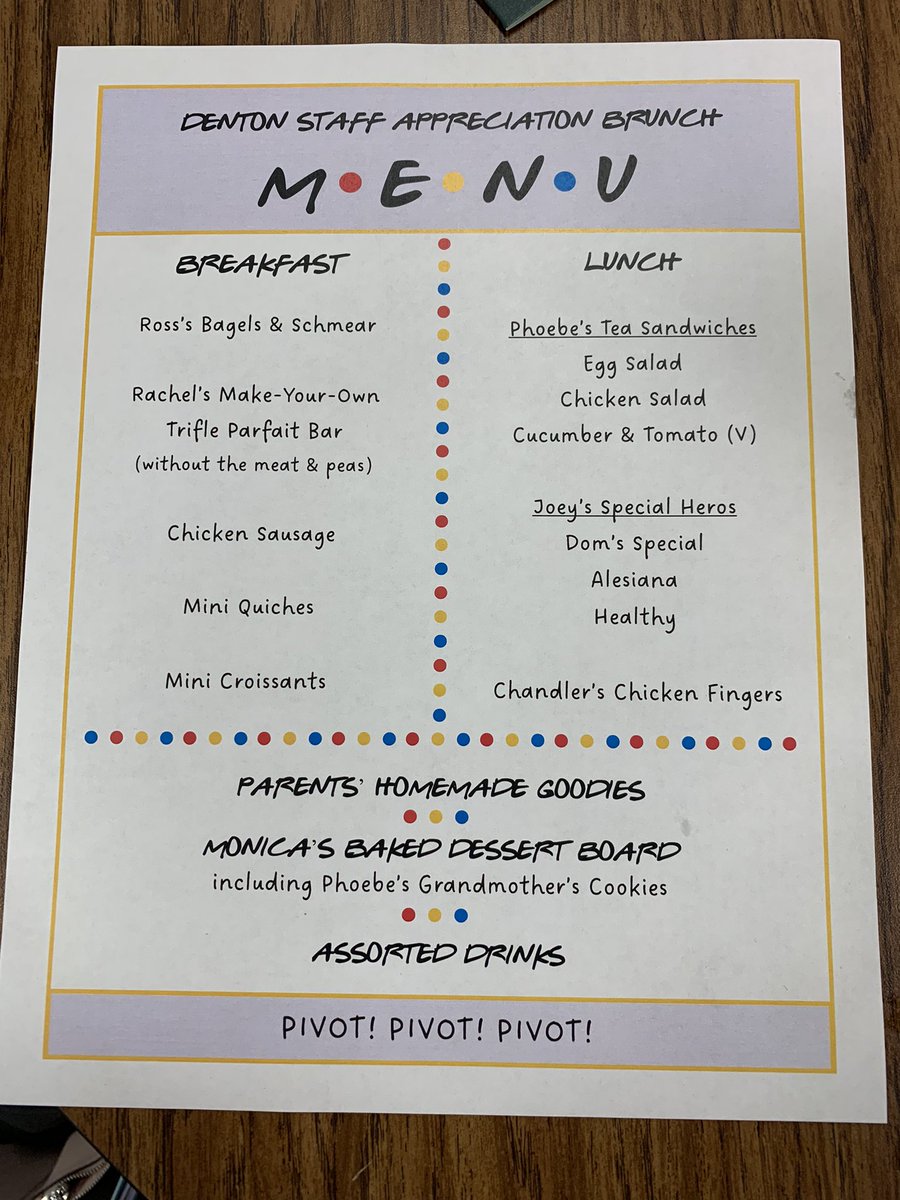 DENTON STAFF APPRECIATION BRUNCH
M•E•N•U
BREAKFAST
Ross's Bagels & Schmear
Rachel's Make-Your-Own
Trifle Parfait Bar
(without the meat & peas)
Chicken Sausage
Mini Quiches
Mini Croissants
LUNCH
Phoebe's Tea Sandwiches
Egg Salad
Chicken Salad
Cucumber & Tomato (V)
Joey's Special Heros
Dom's Special
Alesiana
Healthy
Chandler's Chicken Fingers
PARENTS' HOMEMADE GOODIES
MONICA'S BAKED DESSERT BOARD
including Phoebe's Grandmother's Cookies
ASSORTED DRINKS
PIVOT! PIVOT! PIVOT!